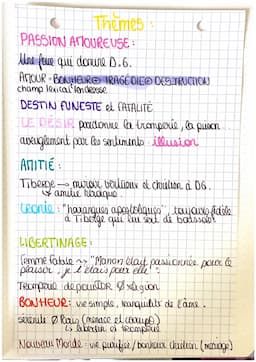 Thèmes :
PASSION AMOUREUSE :
Une force qui domine D.G.
AMOUR - BONHEUR ⊕ TRAGÉDIE ⊕ DESTRUCTION
champ lexical tendresse
DESTIN FUNESTE et FATALITÉ
LE DÉSIR pardonne la tromperie, la prison
aveuglement par les sentiments : illusion
AMITIÉ :
Tiberge → miroir vertueux et chrétien à DG.
↳ amitié héroïque.
Ironie : "harangues apostoliques", toujours fidèle
à Tiberge qui lui sert de
LIBERTINAGE :
Femme Fatale ~> "Manon était passionnée pour le
plaisir, je l'étais pour elle".
Tromperie de pouvoir ∅ religion
BONHEUR : vie simple, tranquillité de l'âme.
sérénité ∅ Paris (menace et couple)
↳ libertin et tromperie
Nouveau Monde : vie purifiée / bonheur chrétien (mariage)